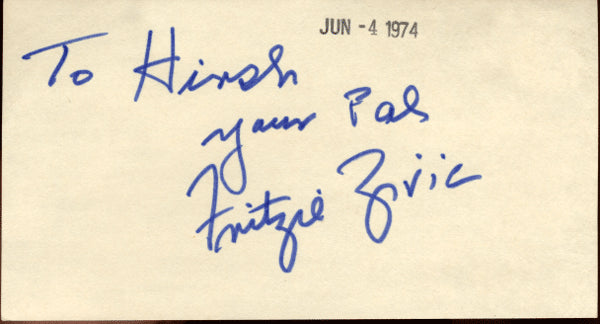 JUN -4 1974
To Hirsh
Your Pal
Fritzie Zivic